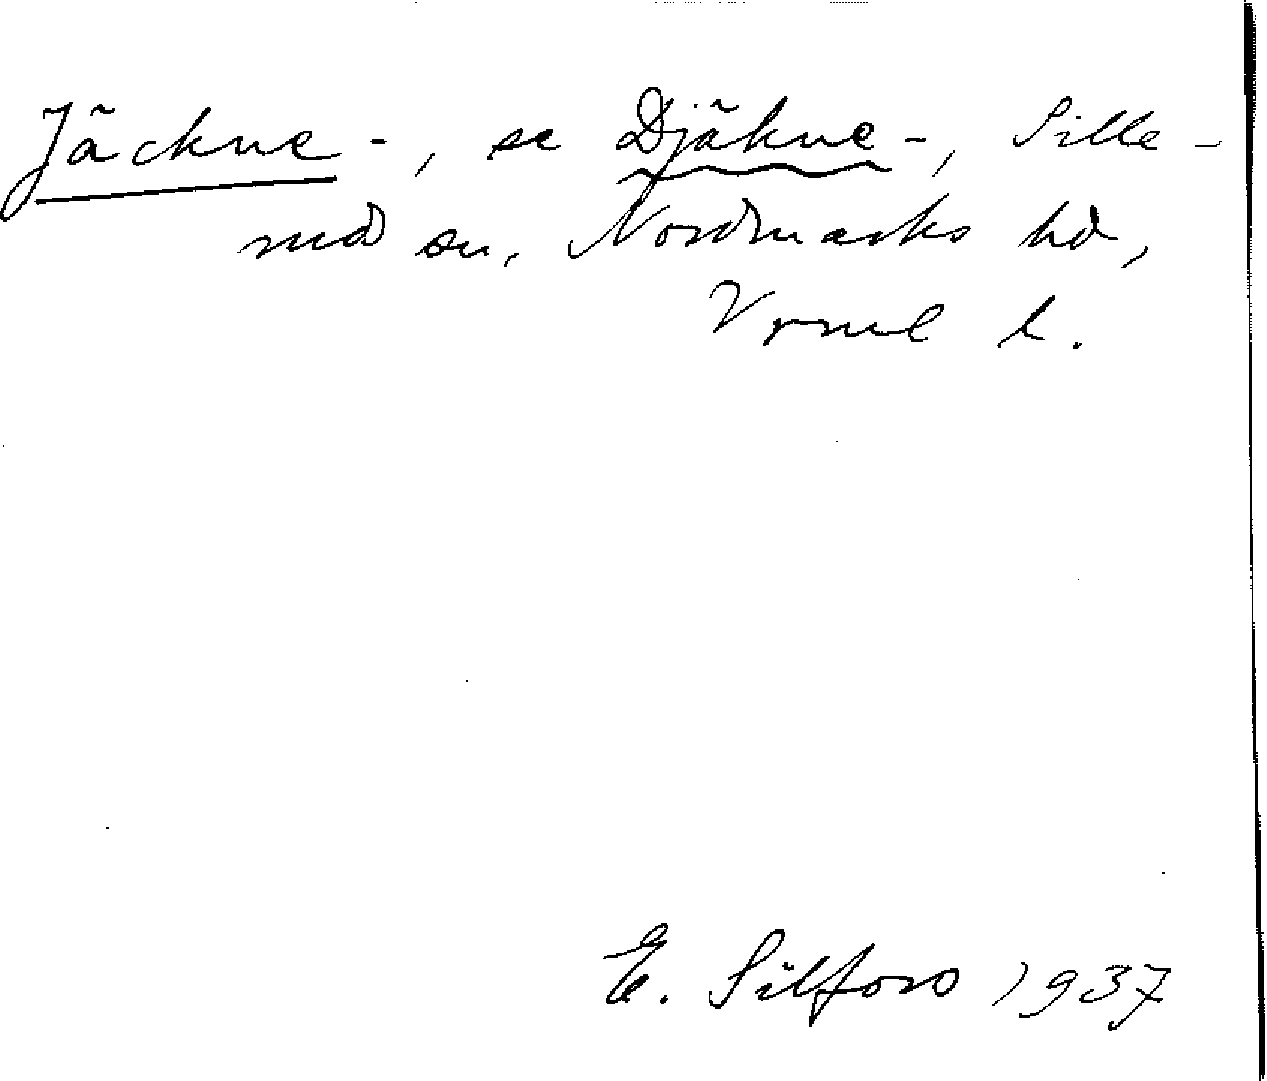 Jäckne-, se Djäkne-, Sille-
rud sn, Nordmarks hd,
Vrml l.
E. Silfors 1937